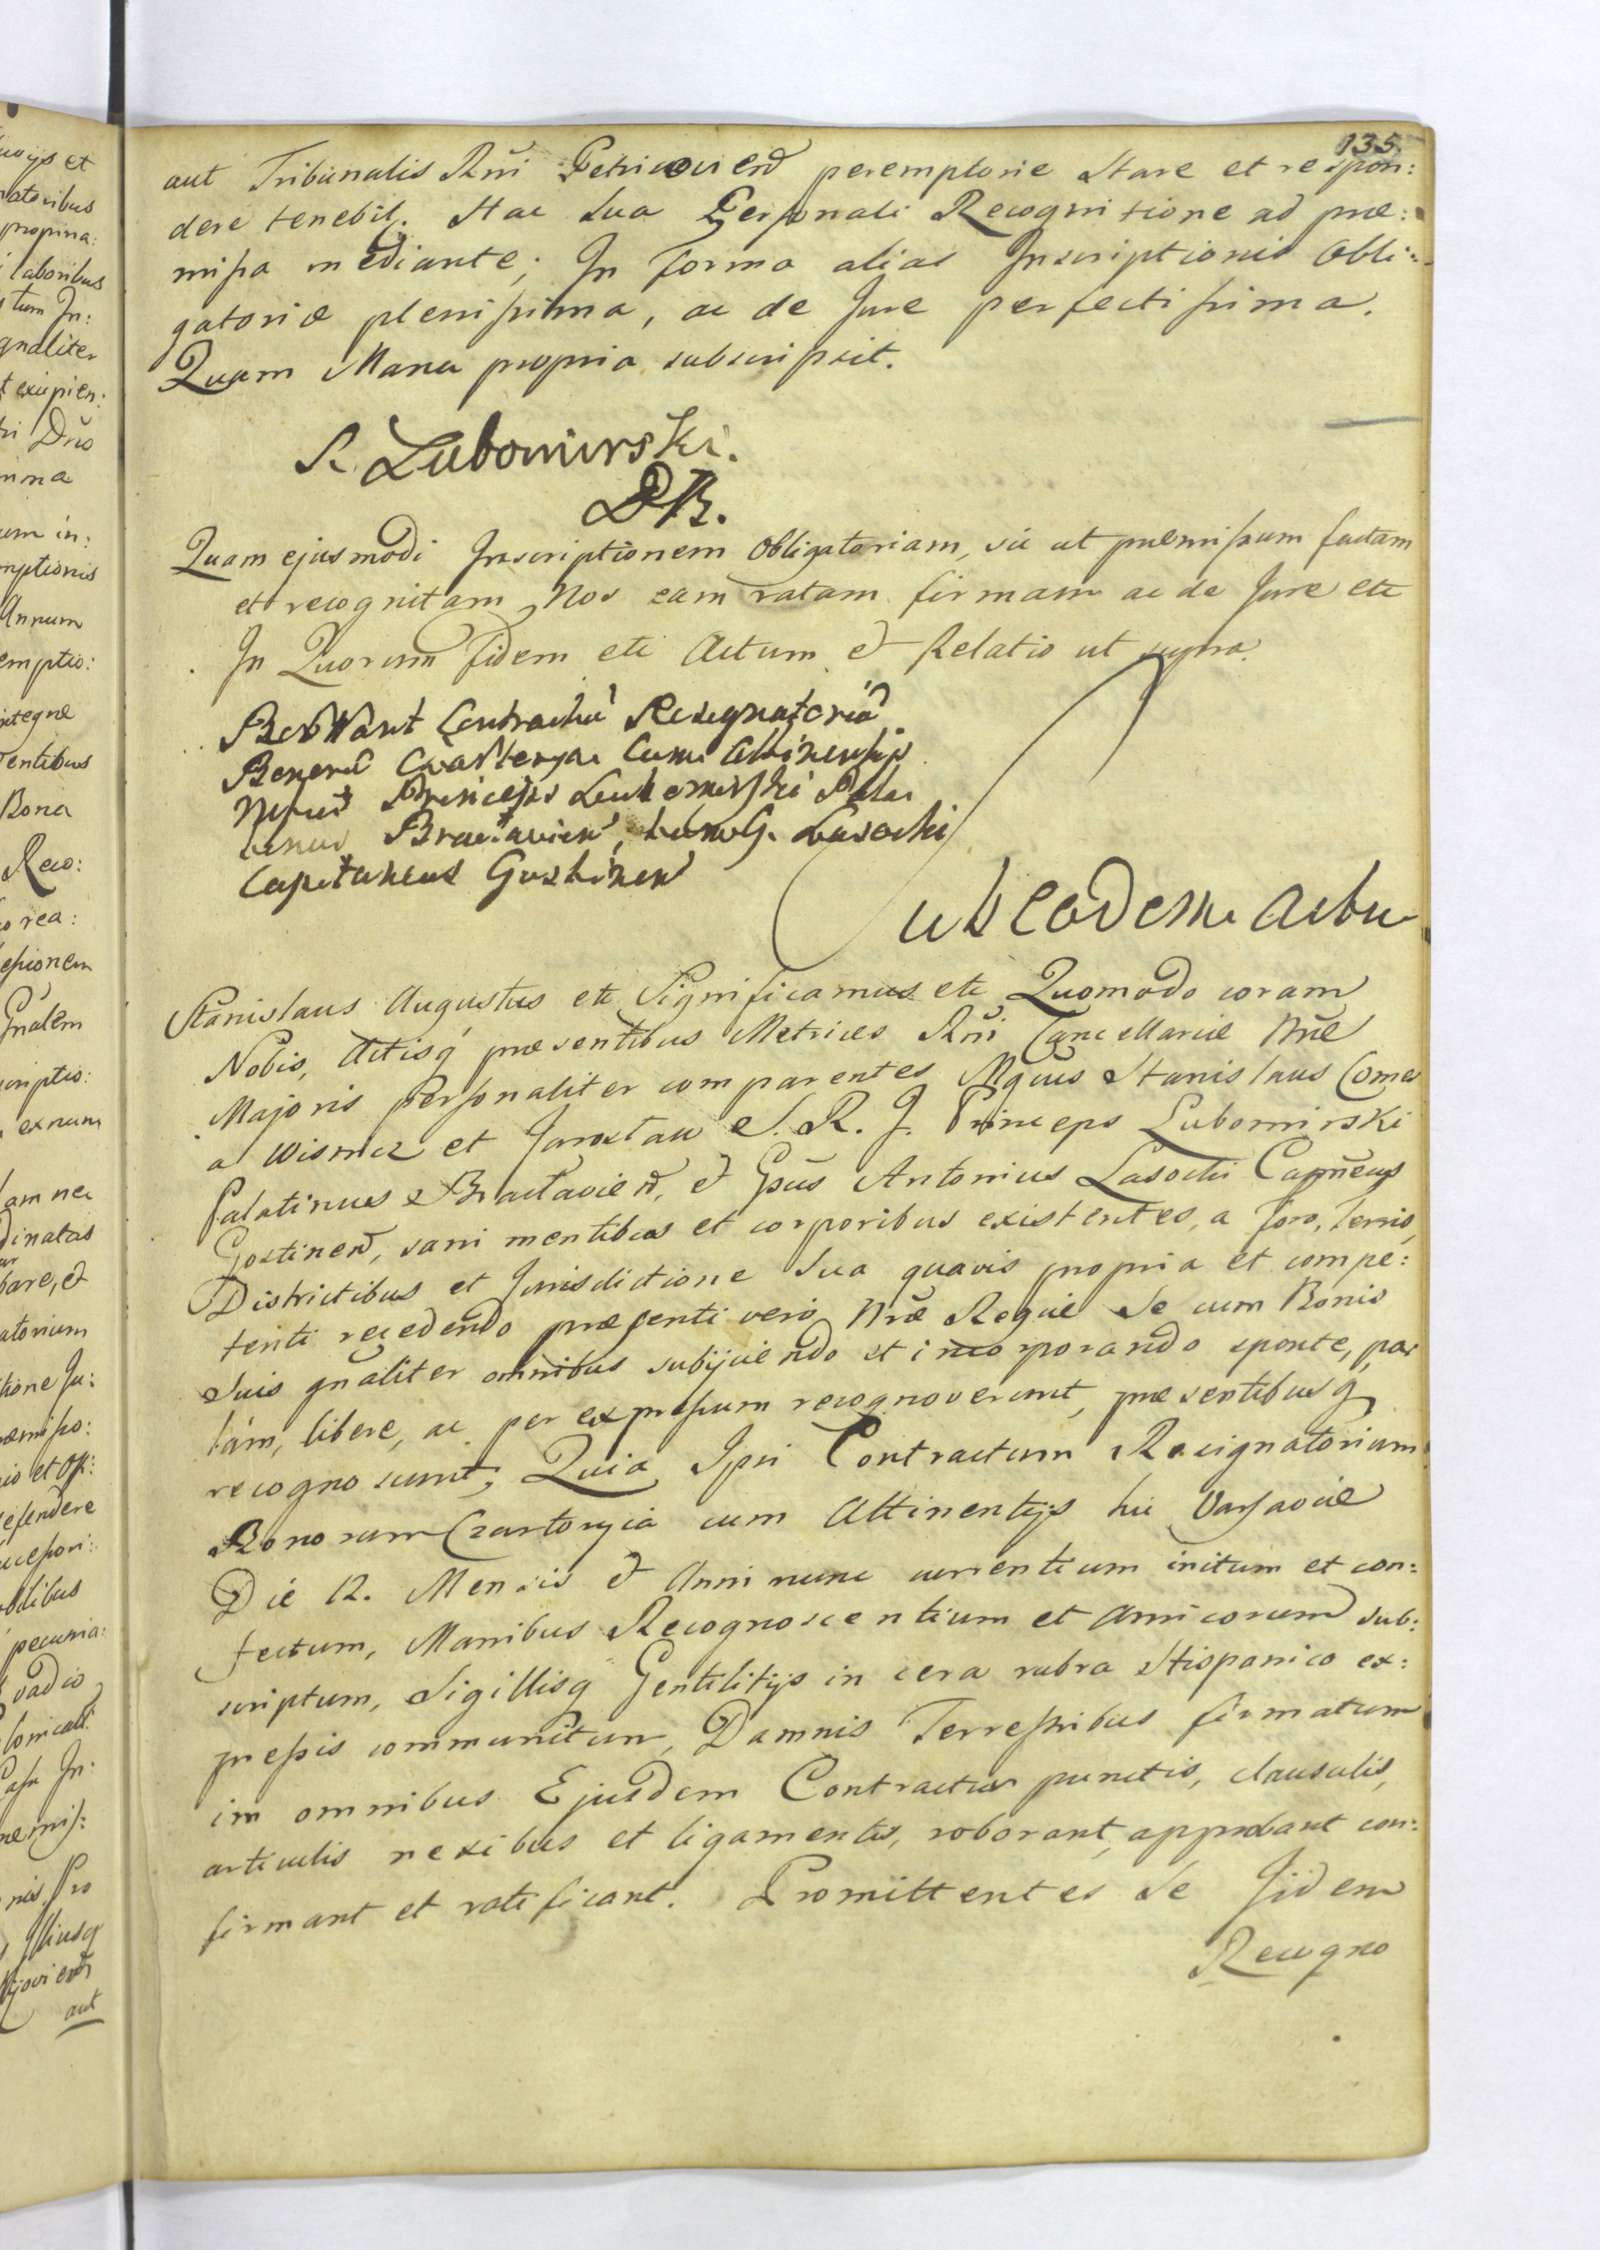 135.
aut Tribunalis Rñi Petricovien̄ peremptorie Stare et respon:
dere tenebit. Hac Sua Personali Recognitione ad præ:
missa mediante; In forma alias Inscriptionis Obli:
gatoriæ plenissima, ac de Jure perfectissima.
Quam Manu propria subscripsit.
S. Lubomirski.
Quam ejusmodi Inscriptionem Obligatoriam, sic ut præmissum factam
et recognitam, Nos eam ratam firmam ac de Jure etc
In Quorum fidem etc Actum et Relatio ut supra.
Roborant Contractū Resignatoriū
Bonorū Czartoryia Cum Attinentijs
Princeps Lubomirski Pala
tinus Braclavien̄, G. Lasocki
Capitaneus Gostinen̄
ub eodem Actu
Stanislaus Augustus etc Significamus etc Quomodo coram
Nobis, Actisq́ præsentibus Metrices Rñi Cancellariæ Nr̃æ
Majoris Personaliter comparentes Mgñus Stanislaus Comes
a Wisnicz et Jaroslau S. R. J. Princeps Lubomirski
Palatinus Braclavien̄, et Gsũs Antonius Lasocki Capñeus
Gostinen̄, sani mentibus et corporibus existentes, a foro, Terris,
Districtibus et Jurisdictione Sua quavis propria et compe:
tenti recedendo præsenti vero Nr̃æ Regiæ Se cum Bonis
Suis gñaliter omnibus subijciendo et incorporando sponte, pa
lam, libere, ac per expressum recognoverunt, præsentibusq́
recognoscunt; Quia Ipsi Contractum Resignatorium
Bonorum Czartoryia cum Attinentijs hic Varsaviæ
Die 12. Mensis et Anni nunc currentium initum et con:
fectum, Manibus Recognoscentium et Amicorum sub:
scriptum, Sigillisq Gentilitijs in cera rubra Hispanico ex:
pressis communitum, Damnis Terrestribus firmatum
in omnibus Ejusdem Contractus punctis, clausulis,
articulis nexibus et ligamentis, roborant, approbant con:
firmant et ratificant. Promittentes Se Iidem
Recogno